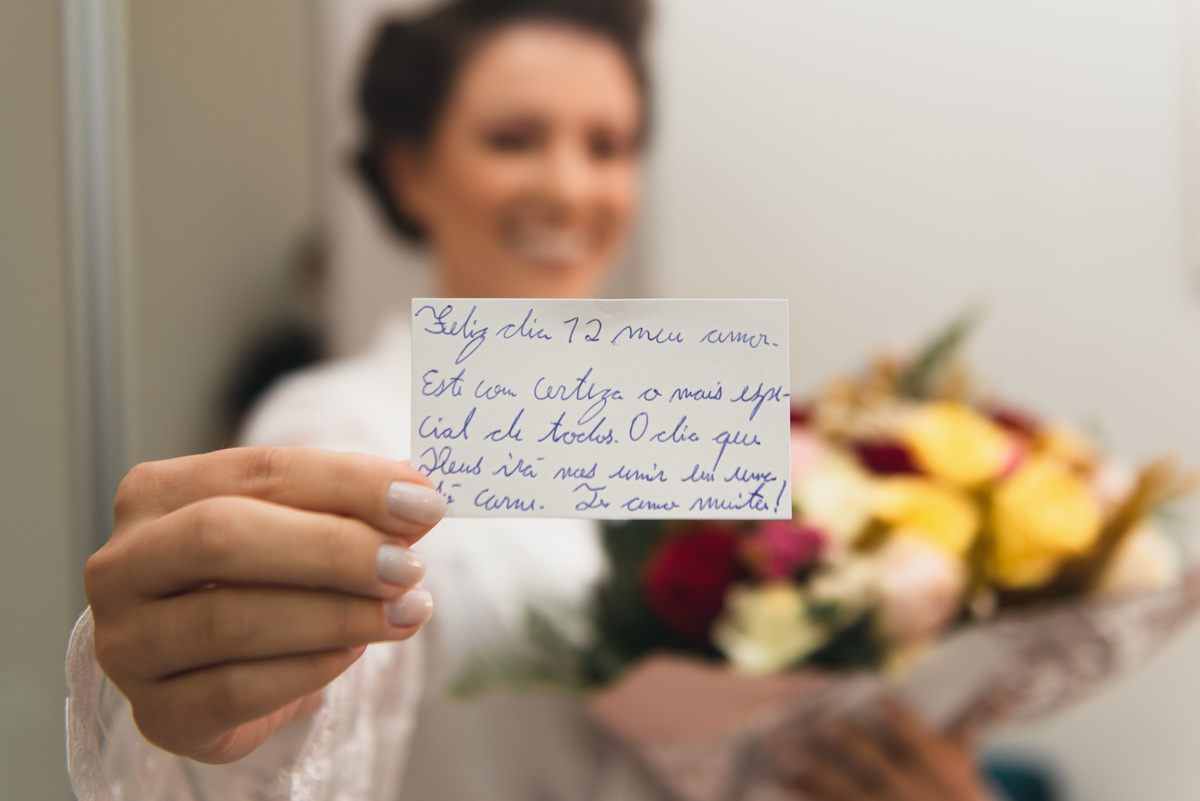 Feliz dia 12 meu amor.
Este com certeza o mais espe-
cial de todos. O dia que
Deus irá nos unir em uma
só carne. Te amo muito!